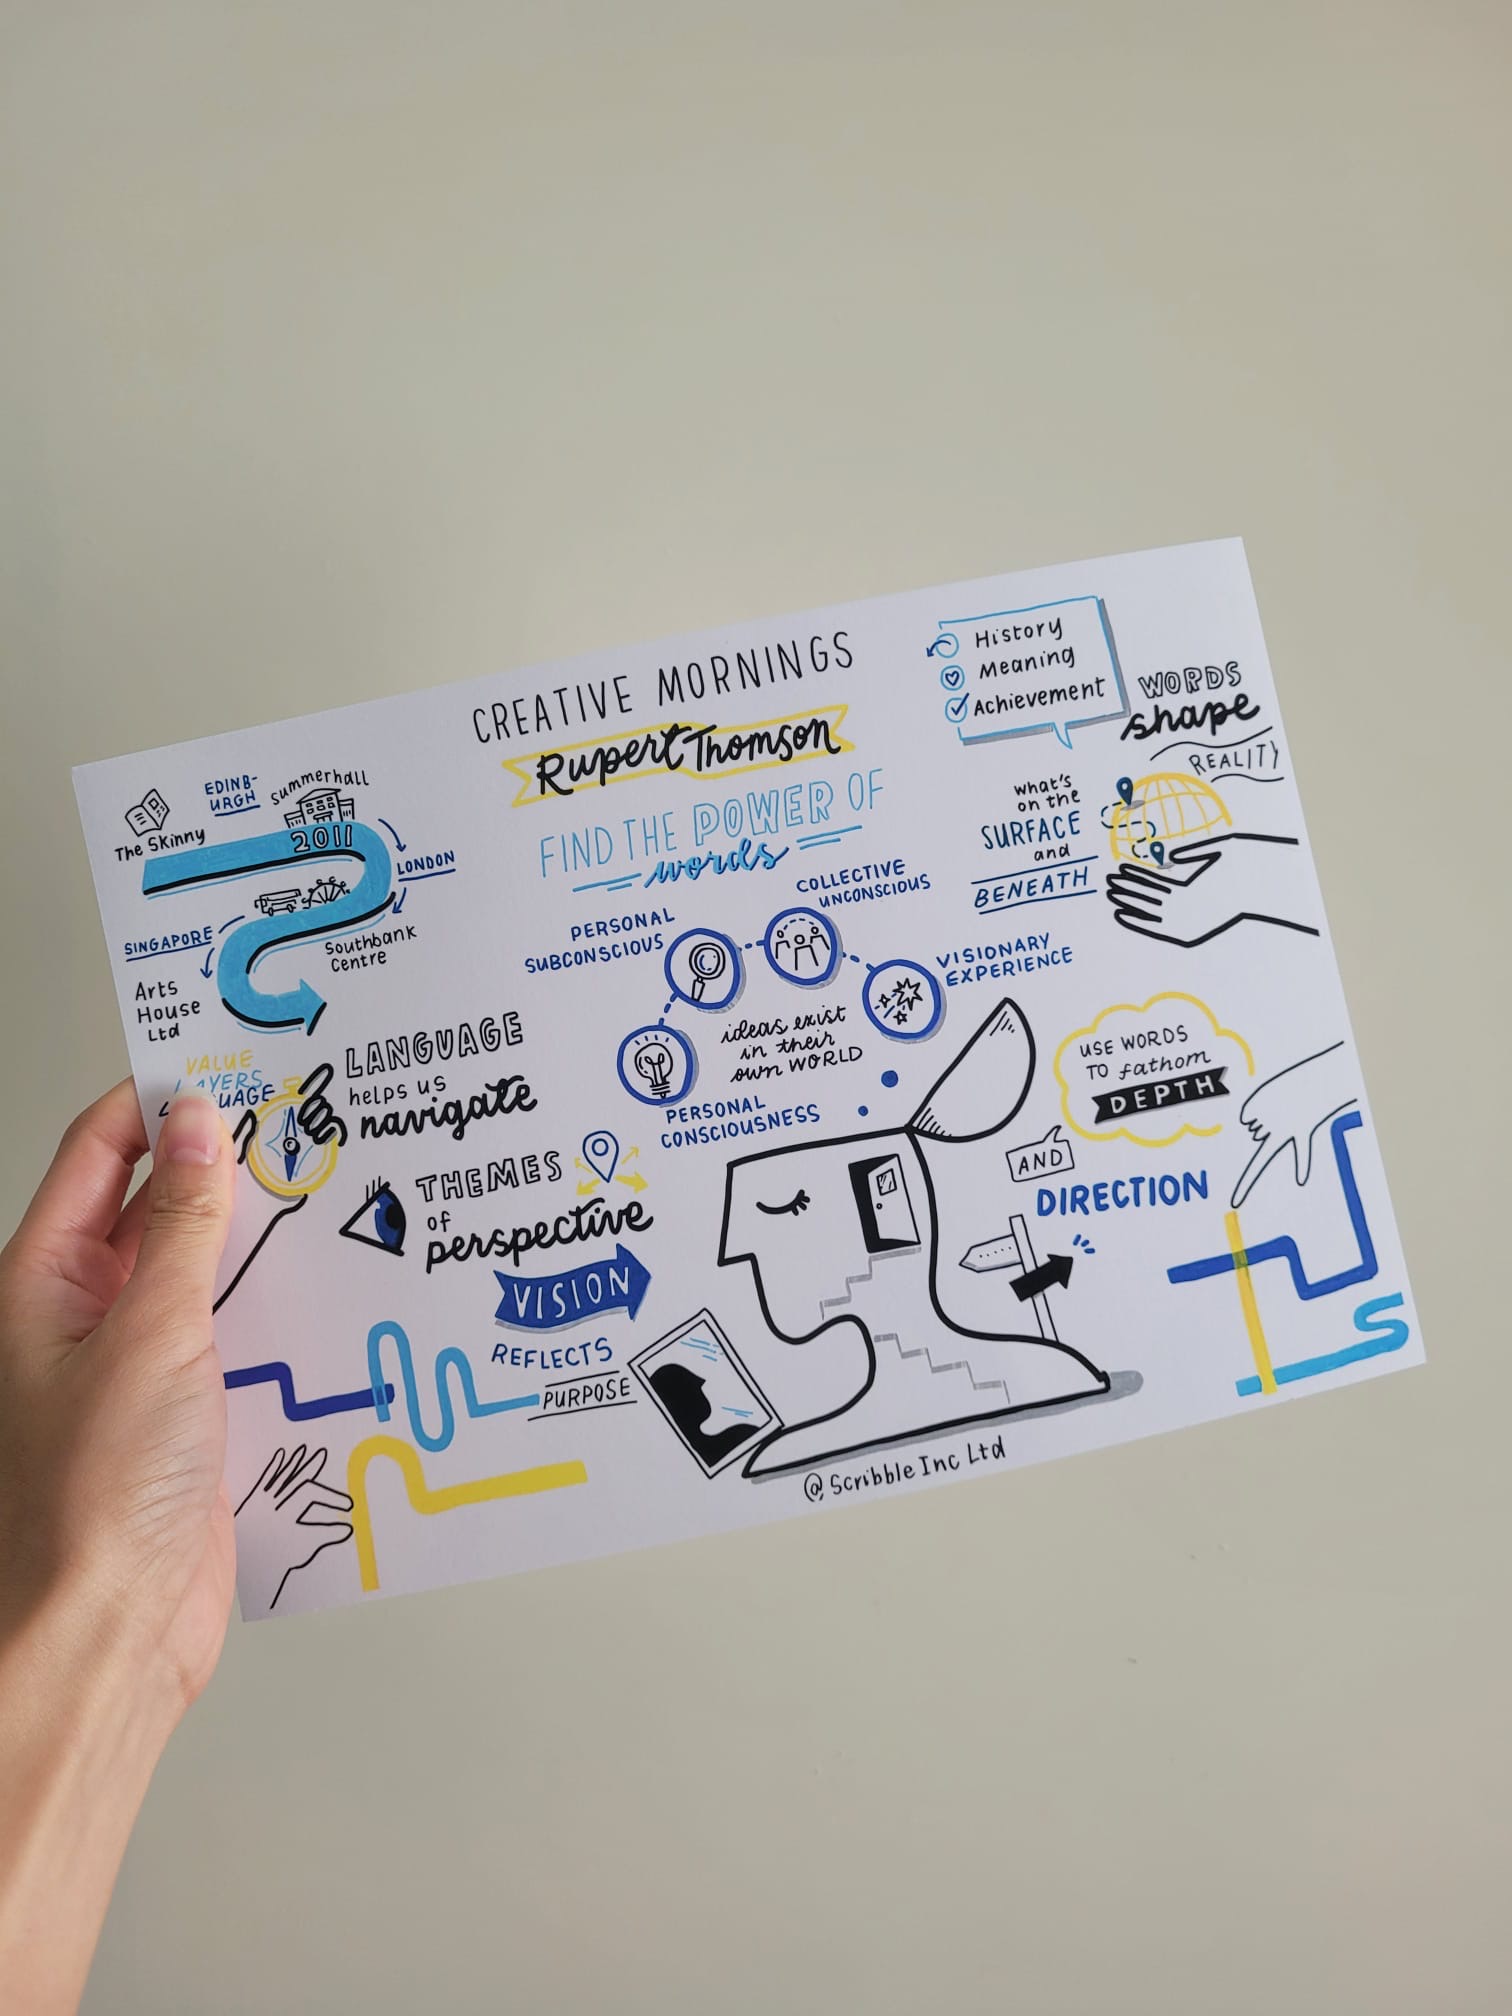 CREATIVE MORNINGS
Rupert Thomson
FIND THE POWER OF
words
The Skinny
EDINB-
URGH
Summerhall
2011
LONDON
Southbank
Centre
SINGAPORE
Arts
House
Ltd
VALUE
LAYERS
LANGUAGE
helps us
navigate
THEMES
of
perspective
VISION
REFLECTS
PURPOSE
PERSONAL
SUBCONSCIOUS
COLLECTIVE
UNCONSCIOUS
VISIONARY
EXPERIENCE
ideas exist
in their
own WORLD
PERSONAL
CONSCIOUSNESS
History
Meaning
Achievement
WORDS
shape
REALITY
what's
on the
SURFACE
and
BENEATH
USE WORDS
TO fathom
DEPTH
AND
DIRECTION
@ Scribble Inc Ltd